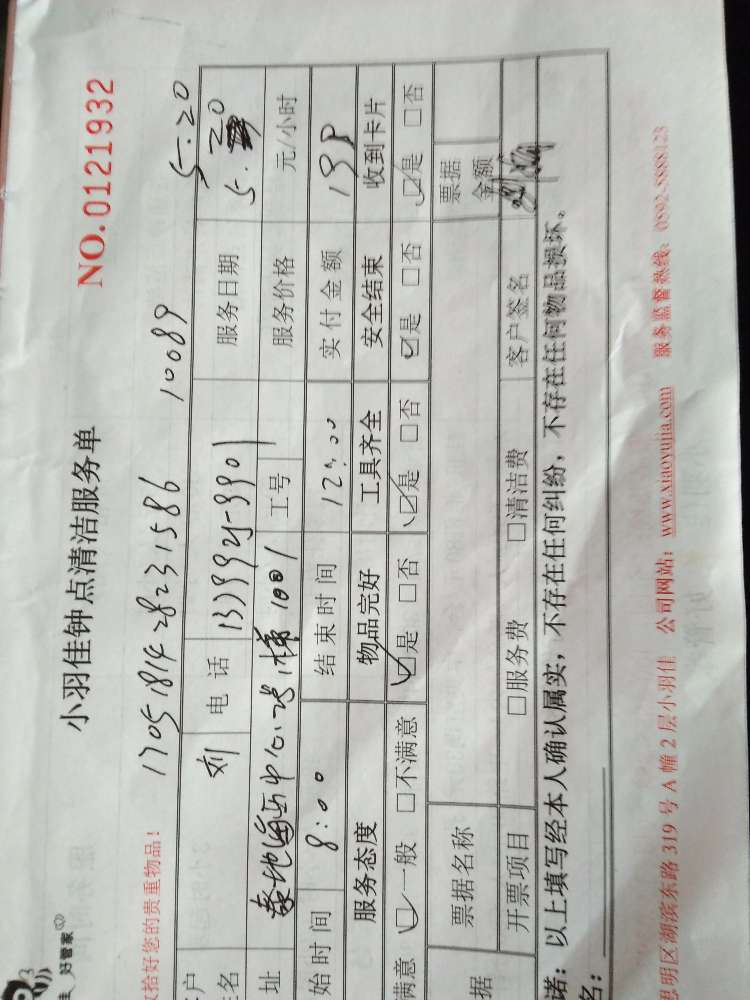 好管家
小羽佳钟点清洁服务单
NO.0121932
拾好您的贵重物品！
1705181428231586 10089 5.20
户 刘 电 话 服务日期 5.20
名
址 中心 1001 工号 服务价格 元/小时
始时间 8:00 结束时间 12:00 实付金额
服务态度 物品完好 工具齐全 安全结束 收到卡片
满意 ☑一般 □不满意 ☑是 □否 ☑是 □否 ☑是 □否 ☑是 □否
据 票据名称 票据金额
开票项目 □服务费 □清洁费 客户签名
诺：以上填写经本人确认属实，不存在任何纠纷，不存在任何物品损坏。
名：
思明区湖滨东路 319 号 A 幢 2 层小羽佳 公司网站：www.xiaoyujia.com 服务监督热线：0592-8888123